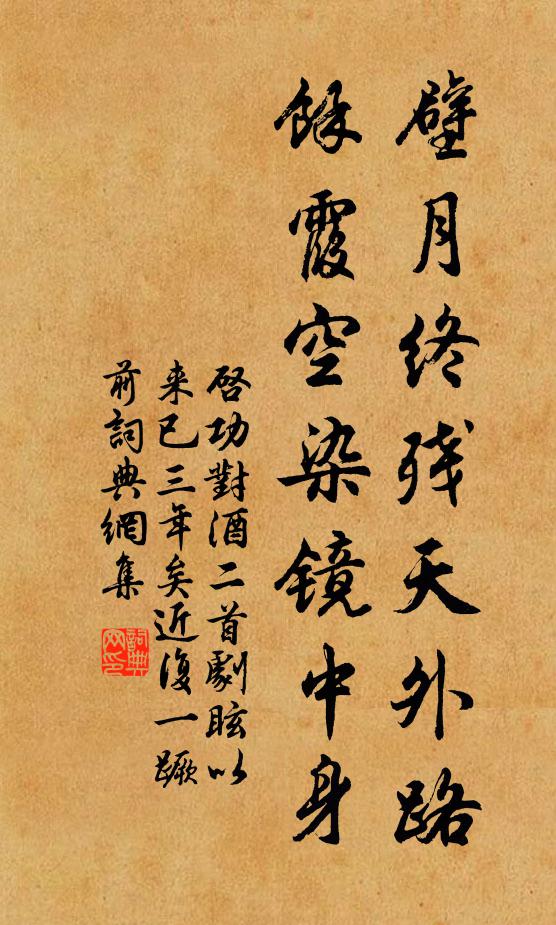 壁月终残天外路
餘霞空染镜中身
啓功對酒二首劇眩以
来已三年矣近復一蹶
前詞典網集
詞典网印